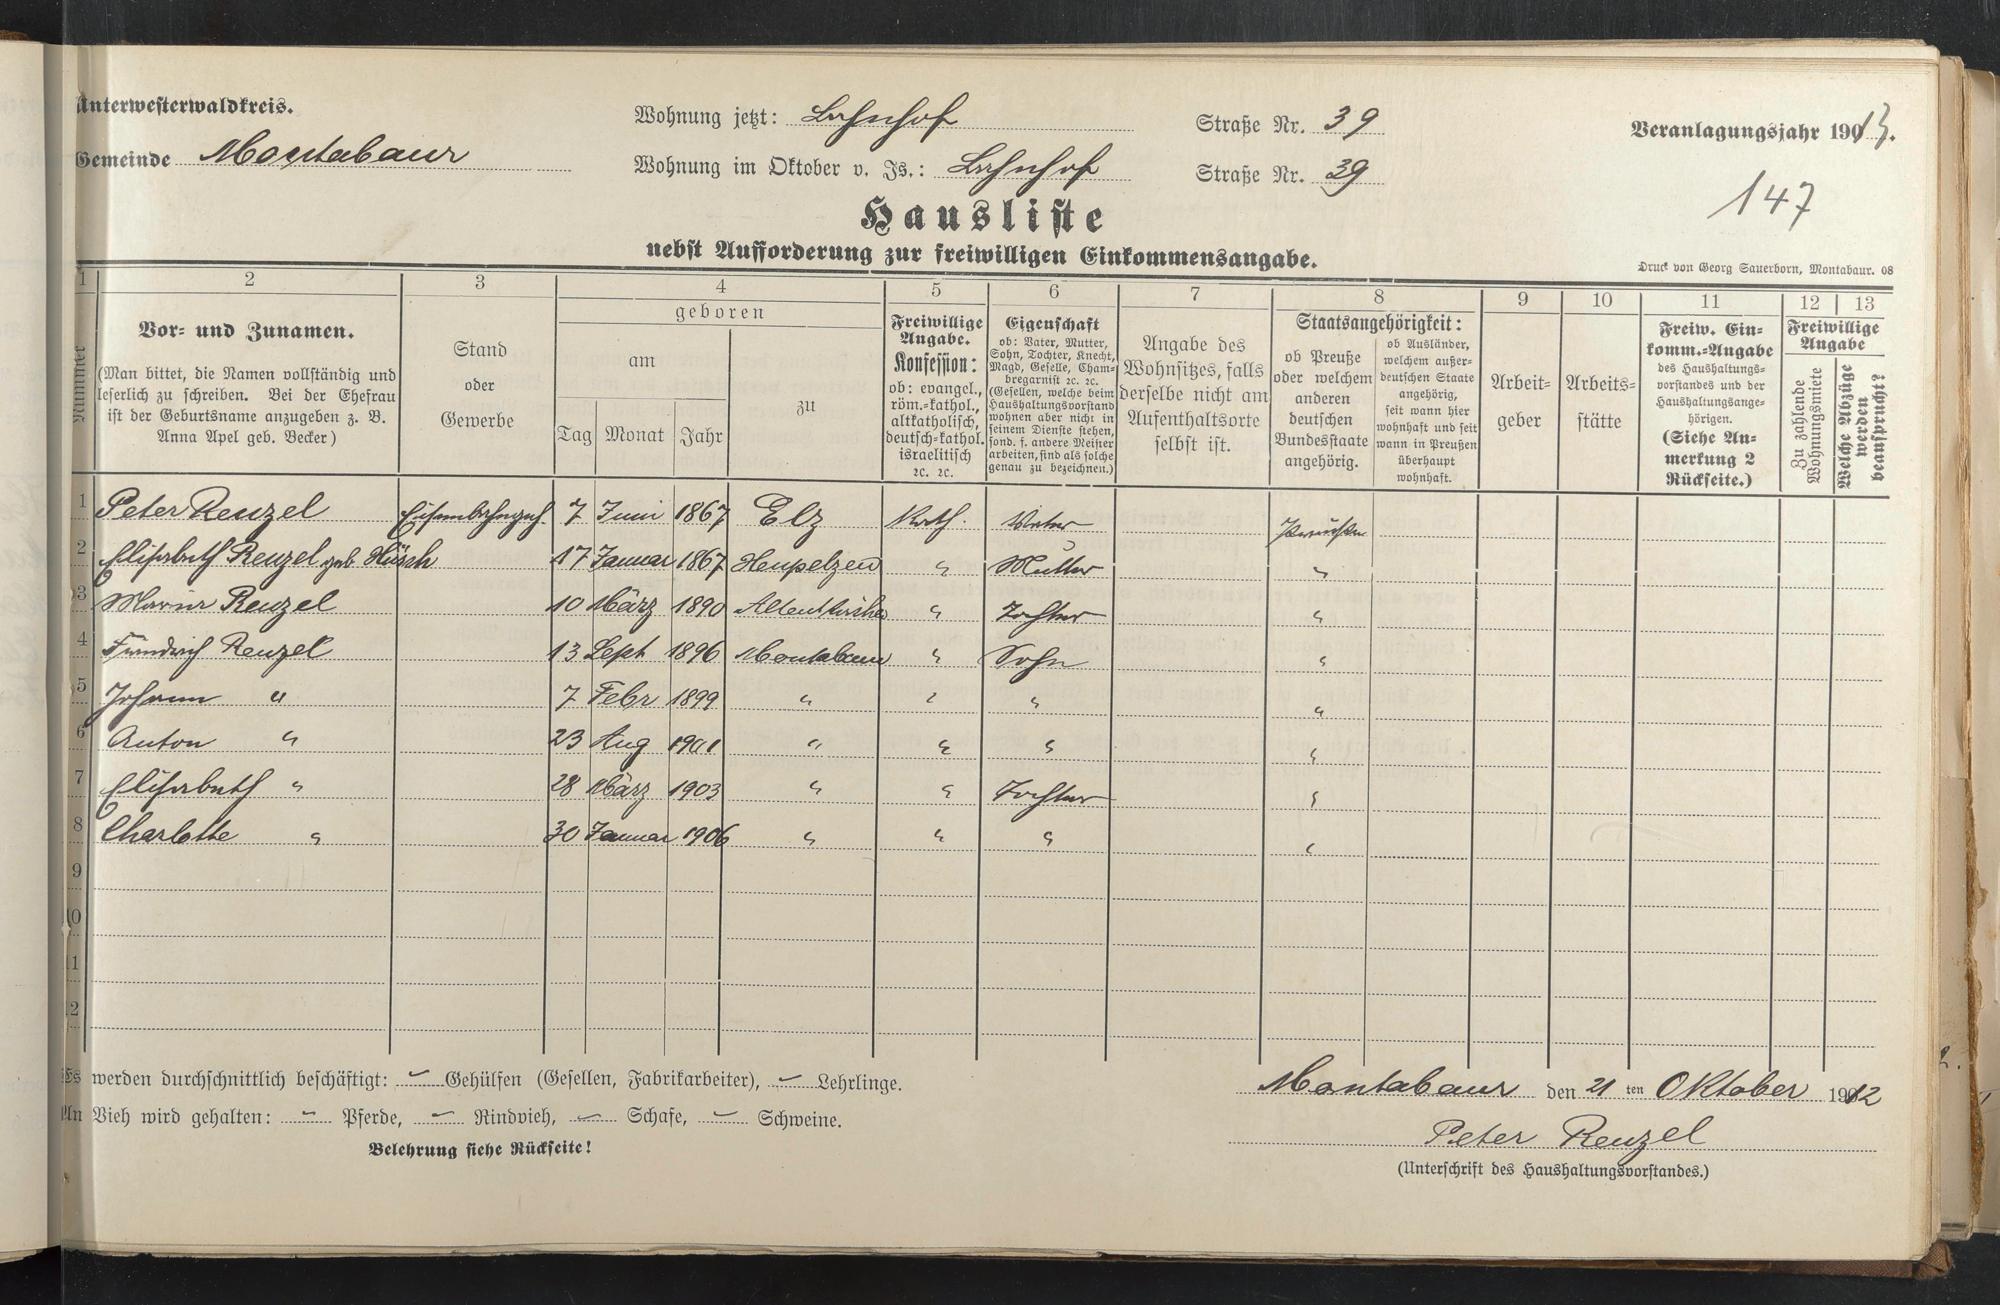 Unterwesterwaldkreis.
Gemeinde Montabaur
Wohnung jetzt: Bahnhof Straße Nr. 39
Wohnung im Oktober v. Js.: Bahnhof Straße Nr. 39
Veranlagungsjahr 1913.
147
Hausliste
nebst Aufforderung zur freiwilligen Einkommensangabe.
Druck von Georg Sauerborn, Montabaur. 08
1 2 3 4 5 6 7 8 9 10 11 12 13
Nummer
Vor- und Zunamen.
(Man bittet, die Namen vollständig und
leserlich zu schreiben. Bei der Ehefrau
ist der Geburtsname anzugeben z. B.
Anna Apel geb. Becker)
Stand
oder
Gewerbe
geboren
am
Tag Monat Jahr
zu
Freiwillige
Angabe.
Konfession:
ob: evangel.,
röm.-kathol.,
altkatholisch,
deutsch-kathol.
israelitisch
ꝛc. ꝛc.
Eigenschaft
ob: Vater, Mutter,
Sohn, Tochter, Knecht,
Magd, Geselle, Cham-
bregarnist ꝛc. ꝛc.
(Gesellen, welche beim
Haushaltungsvorstand
wohnen aber nicht in
seinem Dienste stehen,
sond. f. andere Meister
arbeiten, sind als solche
genau zu bezeichnen.)
Angabe des
Wohnsitzes, falls
derselbe nicht am
Aufenthaltsorte
selbst ist.
Staatsangehörigkeit:
ob Preuße
oder welchem
anderen
deutschen
Bundesstaate
angehörig.
ob Ausländer,
welchem außer-
deutschen Staate
angehörig,
seit wann hier
wohnhaft und seit
wann in Preußen
überhaupt
wohnhaft.
Arbeit-
geber
Arbeits-
stätte
Freiw. Ein-
komm.-Angabe
des Haushaltungs-
vorstandes und der
Haushaltungsange-
hörigen.
(Siehe An-
merkung 2
Rückseite.)
Freiwillige
Angabe
Zu zahlende
Wohnungsmiete
Welche Abzüge
werden
beansprucht?
1 Peter Reuzel Eisenbahngeh. 7 Juni 1867 Elz Kath. Vater Preußen
2 Elisabeth Reuzel geb. Hüsch 17 Januar 1867 Heupelzen " Mutter "
3 Maria Reuzel 10 März 1890 Altenkirchen " Tochter "
4 Friedrich Reuzel 13 Sept 1896 Montabaur " Sohn "
5 Johann " 7 Febr 1899 " " " "
6 Anton " 23 Aug 1901 " " " "
7 Elisabeth " 28 März 1903 " " Tochter "
8 Charlotte " 30 Januar 1906 " " " "
9
10
11
12
Es werden durchschnittlich beschäftigt: – Gehülfen (Gesellen, Fabrikarbeiter), – Lehrlinge.
An Vieh wird gehalten: – Pferde, – Rindvieh, – Schafe, – Schweine.
Belehrung siehe Rückseite!
Montabaur den 21 ten Oktober 1912
Peter Reuzel
(Unterschrift des Haushaltungsvorstandes.)